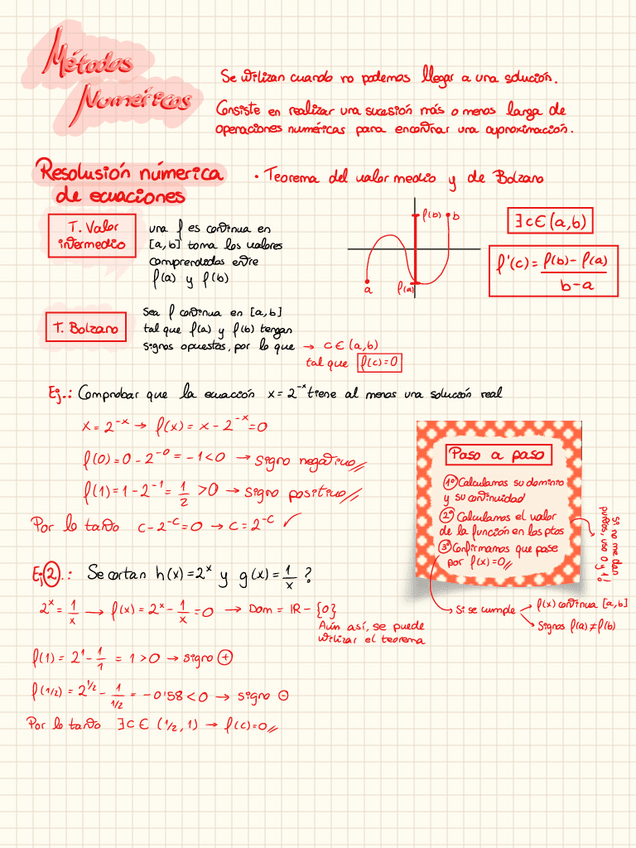 Métodos
Numéricos
Se utilizan cuando no podemos llegar a una solución.
Consiste en realizar una sucesión más o menos larga de
operaciones numéricas para encontrar una aproximación.
Resolusión númerica
de ecuaciones
· Teorema del valor medio y de Bolzano
T. Valor
intermedio
una f es continua en
[a,b] toma los valores
comprendidos entre
f(a) y f(b)
f(b) b
a f(a)
∃ c ∈ (a,b)
f'(c) = f(b) - f(a) / b - a
T. Bolzano
Sea f continua en [a,b]
tal que f(a) y f(b) tengan
signos opuestos, por lo que → c ∈ (a,b)
tal que f(c)=0
Ej.: Comprobar que la ecuación x = 2^-x tiene al menos una solución real
x = 2^-x → f(x) = x - 2^-x = 0
f(0) = 0 - 2^-0 = -1 < 0 → signo negativo //
f(1) = 1 - 2^-1 = 1/2 > 0 → signo positivo //
Por lo tanto c - 2^-c = 0 → c = 2^-c ✓
Paso a paso
1º Calculamos su dominio
y su continuidad
2º Calculamos el valor
de la función en los ptos
3º Confirmamos que pase
por f(x)=0 //
Si no me dan
puntos, uso 0 y 1!
→ Si se cumple → f(x) continua [a,b]
→ Signos f(a) ≠ f(b)
Ej 2.: Se cortan h(x) = 2^x y g(x) = 1/x ?
2^x = 1/x → f(x) = 2^x - 1/x = 0 → Dom = IR - {0}
Aún así, se puede
utilizar el teorema
f(1) = 2^1 - 1/1 = 1 > 0 → signo ⊕
f(1/2) = 2^1/2 - 1/1/2 = -0'58 < 0 → signo ⊖
Por lo tanto ∃ c ∈ (1/2, 1) → f(c)=0 //